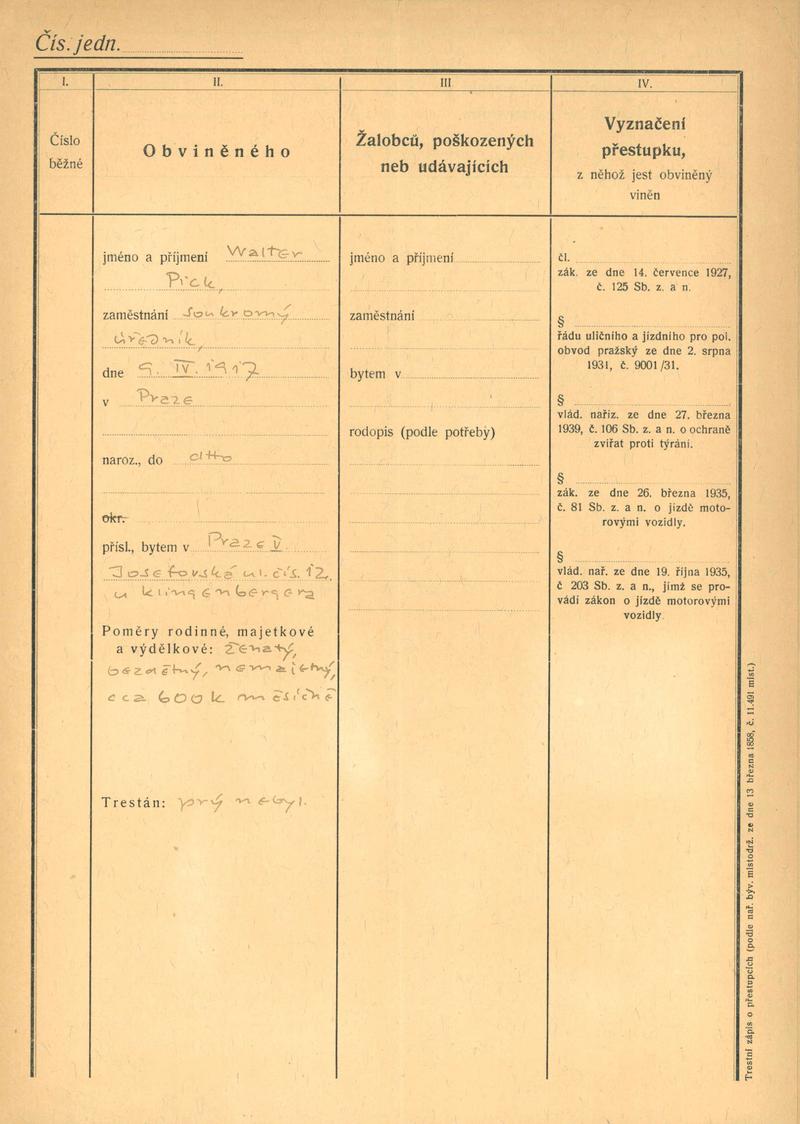 Čís. jedn.
I.
Číslo
běžné
II.
Obviněného
III
Žalobců, poškozených
neb udávajících
IV.
Vyznačení
přestupku,
z něhož jest obviněný
viněn
jméno a příjmení Walter
Pick,
zaměstnání soukromý
úředník,
dne 9. IV. 1917
v Praze
naroz., do otto
okr.
přísl., bytem v Praze V
Josefovská ul. čís. 12,
u Klingenbergera
Poměry rodinné, majetkové
a výdělkové: ženatý,
bezdětný, nemajetný,
cca 600 K měsíčně
Trestán: prý nebyl.
jméno a příjmení
zaměstnání
bytem v
rodopis (podle potřeby)
čl.
zák. ze dne 14. července 1927,
č. 125 Sb. z. a n.
§
řádu uličního a jízdního pro pol.
obvod pražský ze dne 2. srpna
1931, č. 9001/31.
§
vlád. naříz. ze dne 27. března
1939, č. 106 Sb. z. a n. o ochraně
zvířat proti týrání.
§
zák. ze dne 26. března 1935,
č. 81 Sb. z. a n. o jízdě moto-
rovými vozidly.
§
vlád. nař. ze dne 19. října 1935,
č 203 Sb. z. a n., jímž se pro-
vádí zákon o jízdě motorovými
vozidly.
Trestní zápis o přestupcích (podle nař. býv. místodrž. ze dne 13 března 1858, č. 11.491 míst.)